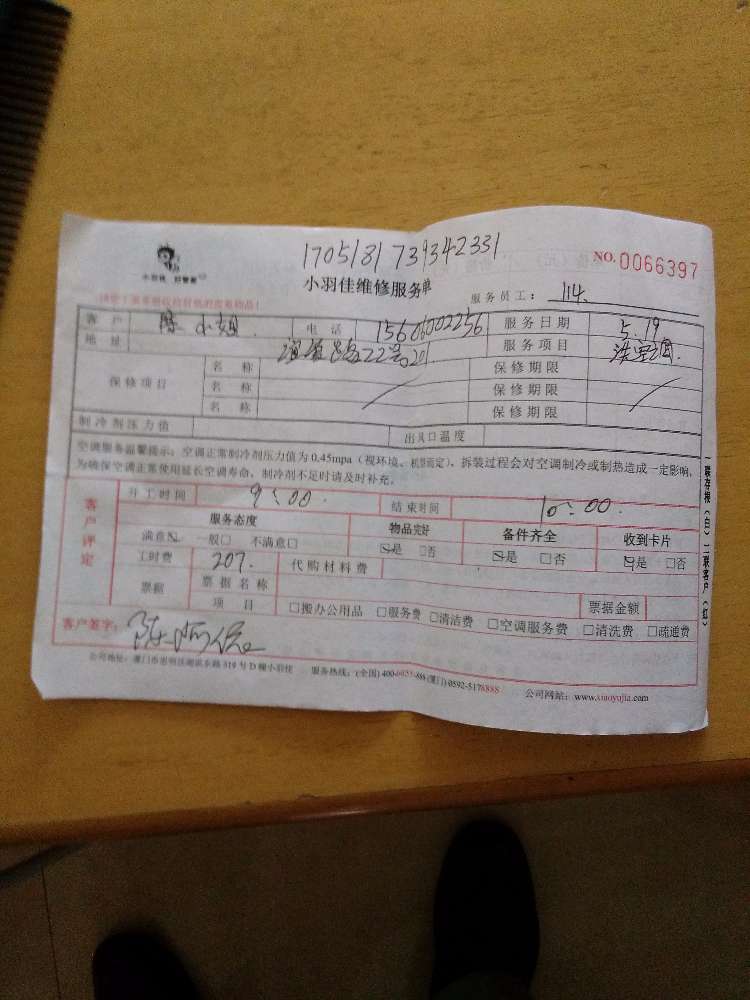 1705181739342331
小羽佳 好管家
NO.0066397
小羽佳维修服务单
服务员工：114.
客户 陈小姐 电话 15606002256 服务日期 5.19
地址 22号201 服务项目 洗空调
保修项目 名称 保修期限
名称 保修期限
名称 保修期限
制冷剂压力值 出风口温度
空调服务温馨提示：空调正常制冷剂压力值为0.45mpa（视环境、机型而定），拆装过程会对空调制冷或制热造成一定影响，
为确保空调正常使用延长空调寿命，制冷剂不足时请及时补充。
客户评定
开工时间 9:00 结束时间 10:00
服务态度 物品完好 备件齐全 收到卡片
满意☑ 一般□ 不满意□ ☑是 □否 ☑是 □否 ☑是 □否
工时费 207. 代购材料费
票据 票据名称 票据金额
项目 □搬办公用品 □服务费 □清洁费 □空调服务费 □清洗费 □疏通费
客户签字：陈
公司地址：厦门市思明区湖滨东路319号D幢小羽佳 服务热线：(全国) (厦门) 0592-5176888 公司网站：www.xiaoyujia.com
一联存根（白）二联客户（红）